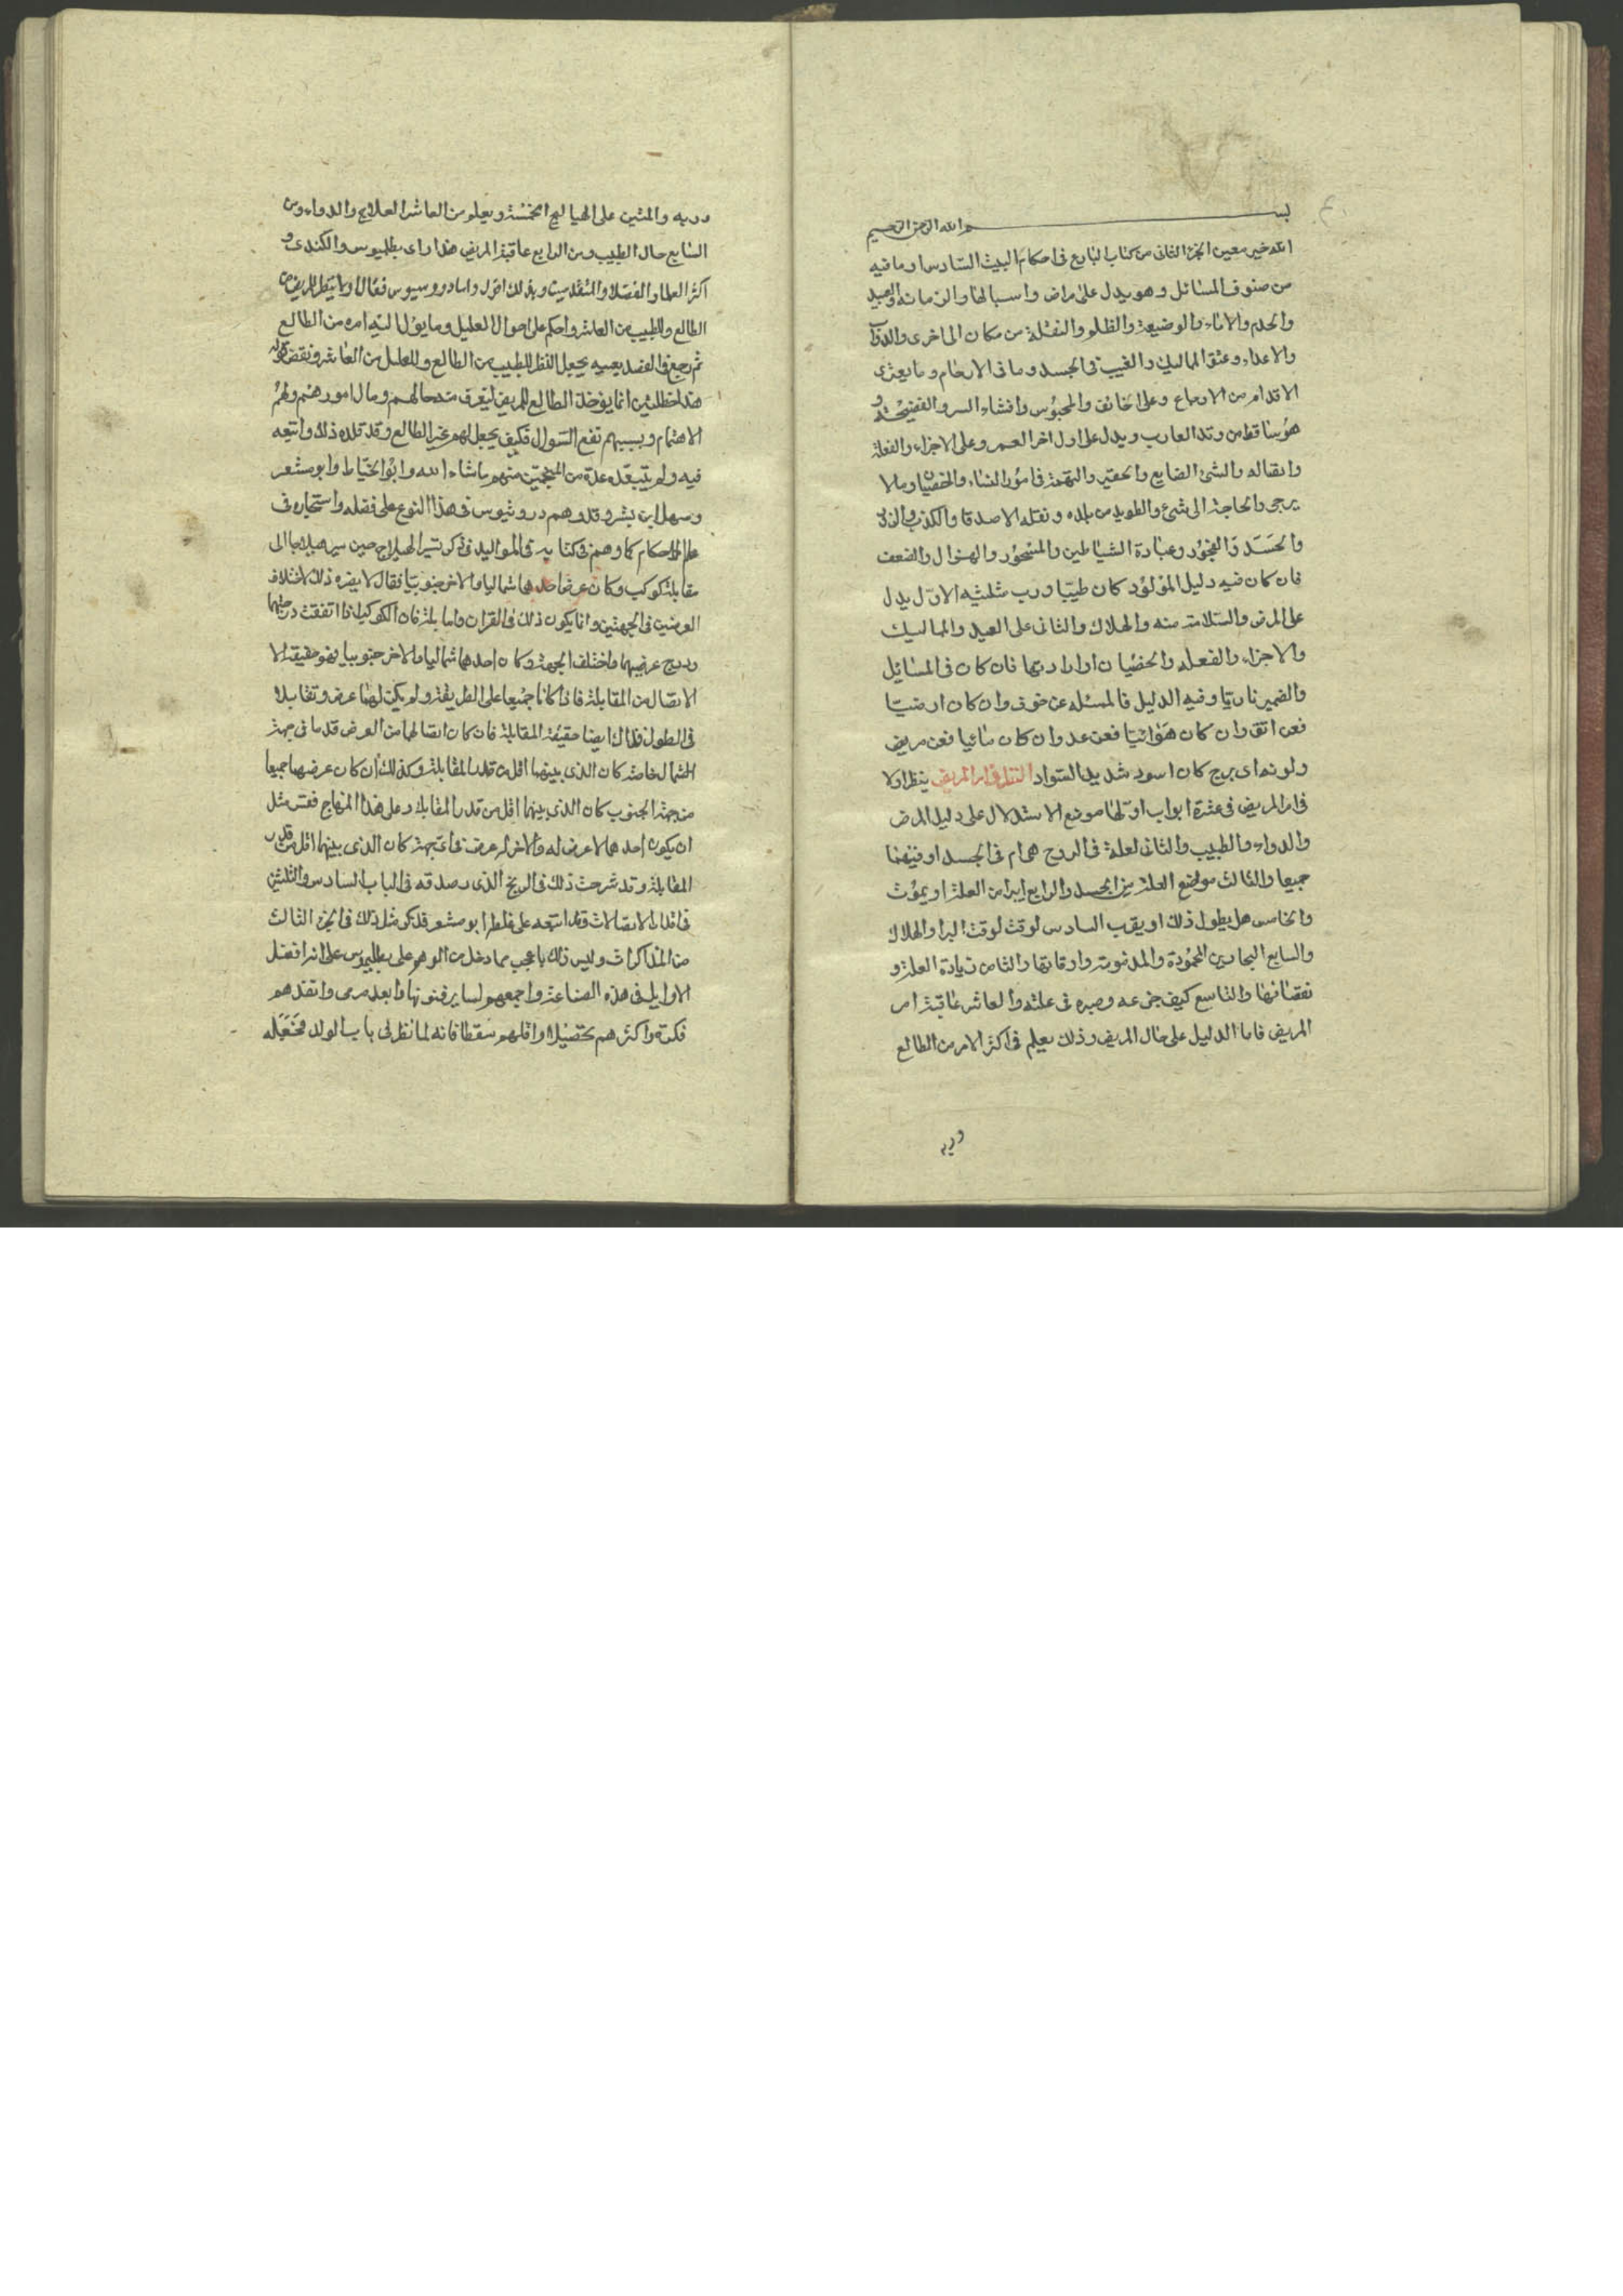 بسم الله الرحمن الرحيم
الله خير معين الجزء الثانى من كتاب البارع فى احكام البيت السادس وما فيه
من صنوف المسائل وهو يدل على مراض واسبابها والزمانة والعبيد
والخدم والاماء والوضيعة والظلم والنقلة من مكان الى اخرى والدواب
والاعداء وعتق المماليك والغيب فى الجسد وما فى الارحام وما يعترى
الاقدام من الاوجاع وعلى الخائف والمحبوس وافشاء السر والفضيحة و
هو ساقط من وتد الغارب ويدل على اول اخر العمر وعلى الاجراء والفعلة
وابقاله والشئ الضايع والحقير والتهمة فى امور النساء والخصيان وما لا
يرجى والحاجة الى شئ والطريد من بلده ونقله الاصدقا والكذب والزنى
والحسد والفجور وعبادة الشياطين والمسحور والهزال والضعف
فان كان فيه دليل المولود كان طبيبا ورب مثلثيه الاول يدل
على المرض والسلامة منه والهلاك والثانى على العبيد والمماليك
والاجراء والفعله والخصيان اوارادتها فان كان فى المسائل
والضمير ناريا وفيه الدليل فالمسئله عن خوف وان كان ارضيا
فعن ابق وان كان هوائيا فعن عدو وان كان مائيا فعن مريض
ولونه اى برج كان اسود شديد السواد النظر فى امر المريض ينظر اولا
فى امر المريض فى عشرة ابواب اولها موضع الاستدلال على دليل المرض
والدواء والطبيب والثانى لعلة فى الروح هى ام فى الجسد او فيهما
جميعا والثالث موضع العلة من الجسد والرابع ايبرا من العلة او يموت
والخامس هل يطول ذلك او يقرب السادس لوقت لوقت البرا والهلاك
والسابع البحارين المحمودة والمذمومة واوقاتها والثامن زيادة العلة و
نقصانها والتاسع كيف جزعه وصبره فى علته والعاشر عاقبة امر
المريض فاما الدليل على حال المريض وذلك يعلم فى اكثر الامر من الطالع
وربه
وربه والمثنين على الهياليج الخمسة ويعلم من العاشر العلاج والدواء ومن
السابع حال الطبيب ومن الرابع عاقبة المريض هذا راى بطلميوس والكندى و
اكثر العلما والفضلا والمتقدمين وبذلك اقول واما دوروسيوس فقال اولا ينظر للمريض من
الطالع وللطبيب من العاشر واحكم على احوال العليل وما يؤل اليه امره من الطالع
ثم رجع فى الفصل بعينه يجعل النظر للطبيب من الطالع وللعليل من العاشر ونقض قوله
هذا خطلئين انما يؤخذ الطالع للمريض ليعرف منه حالهم ومال امورهم ولهم
الاهتمام وبسببهم تقع السوال فكيف يجعل لهم غير الطالع وقد قلده ذلك واتبعه
فيه ولم يتبعه عدة من المنجمين منهم ماشاء الله وابو الخياط وابو معشر
وسهل ابن بشر وقد وهم دروثيوس فى هذا النوع على فضله واستحباره فى
علم الاحكام كما وهم فى كتابه فى المواليد فى ذكر تسير الهيلاج حين سير هيلاجا الى
مقابلة كوكب وكان عرض احدهما شماليا والاخر جنوبيا فقال لا يضره ذلك لاختلاف
العرضين فى الجهتين وانما يكون ذلك فى القران واما بلة فان الكوكبين اذا اتفقت درجتهما
ودرج عرضيهما واختلف الجهة وكان احدهما شماليا والاخر جنوبيا فهو حقيقة الا
الاتصال من المقابلة فاذا كانا جميعا على الطريقة ولم يكن لهما عرض وتقابلا
فى الطول فذاك ايضا حقيقة المقابلة فان كان اتصالهما من العرض قدما فى جهة
الشمال خاصة كان الذى بينهما اقل من قدر المقابلة وكذلك ان كان عرضهما جميعا
من جهة الجنوب كان الذى بينهما اقل من قدر المقابلة وعلى هذا المنهاج فقس مثل
ان يكون احدهما لا عرض له والاخر له عرض فى اى جهة كان الذى بينهما اقل من قدر
المقابلة وقد شرحت ذلك فى الزيج الذى رصدته فى الباب السادس والثلثين
فى اقدار الاتصالات وقد اتبعه على غلطه ابو معشر فذكر مثل ذلك فى الجزء الثالث
من المذاكرات وليس ذلك باعجب مما دخل من الوهم على بطلميوس على انه افضل
الاوايل فى هذه الصناعة واجمعهم لساير فنونها وابعد مرمى وانفذهم
فكرة واكثرهم تحصيلا واقلهم سقطا فانه لما نظر فى باب الولد فجعله